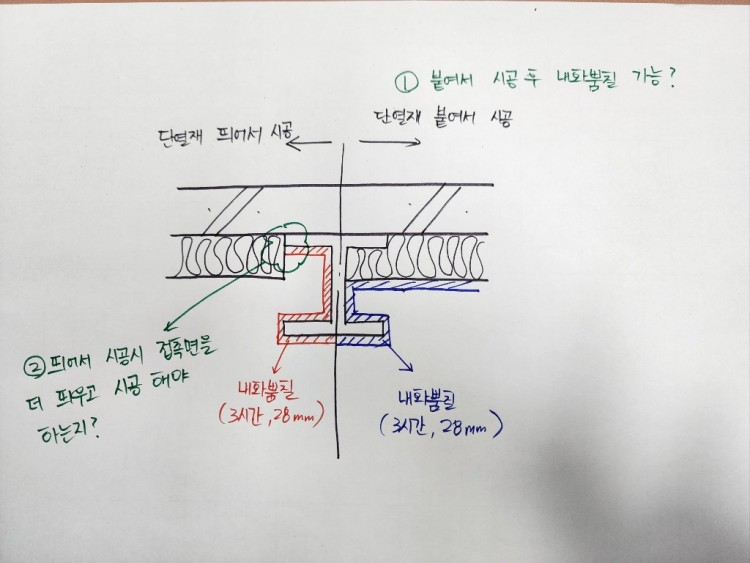 ① 붙여서 시공 후 내화뿜칠 가능?
단열재 띄어서 시공
단열재 붙여서 시공
② 띄어서 시공시 접촉면을
더 띄우고 시공 해야
하는지?
내화뿜칠
(3시간, 28mm)
내화뿜칠
(3시간, 28mm)